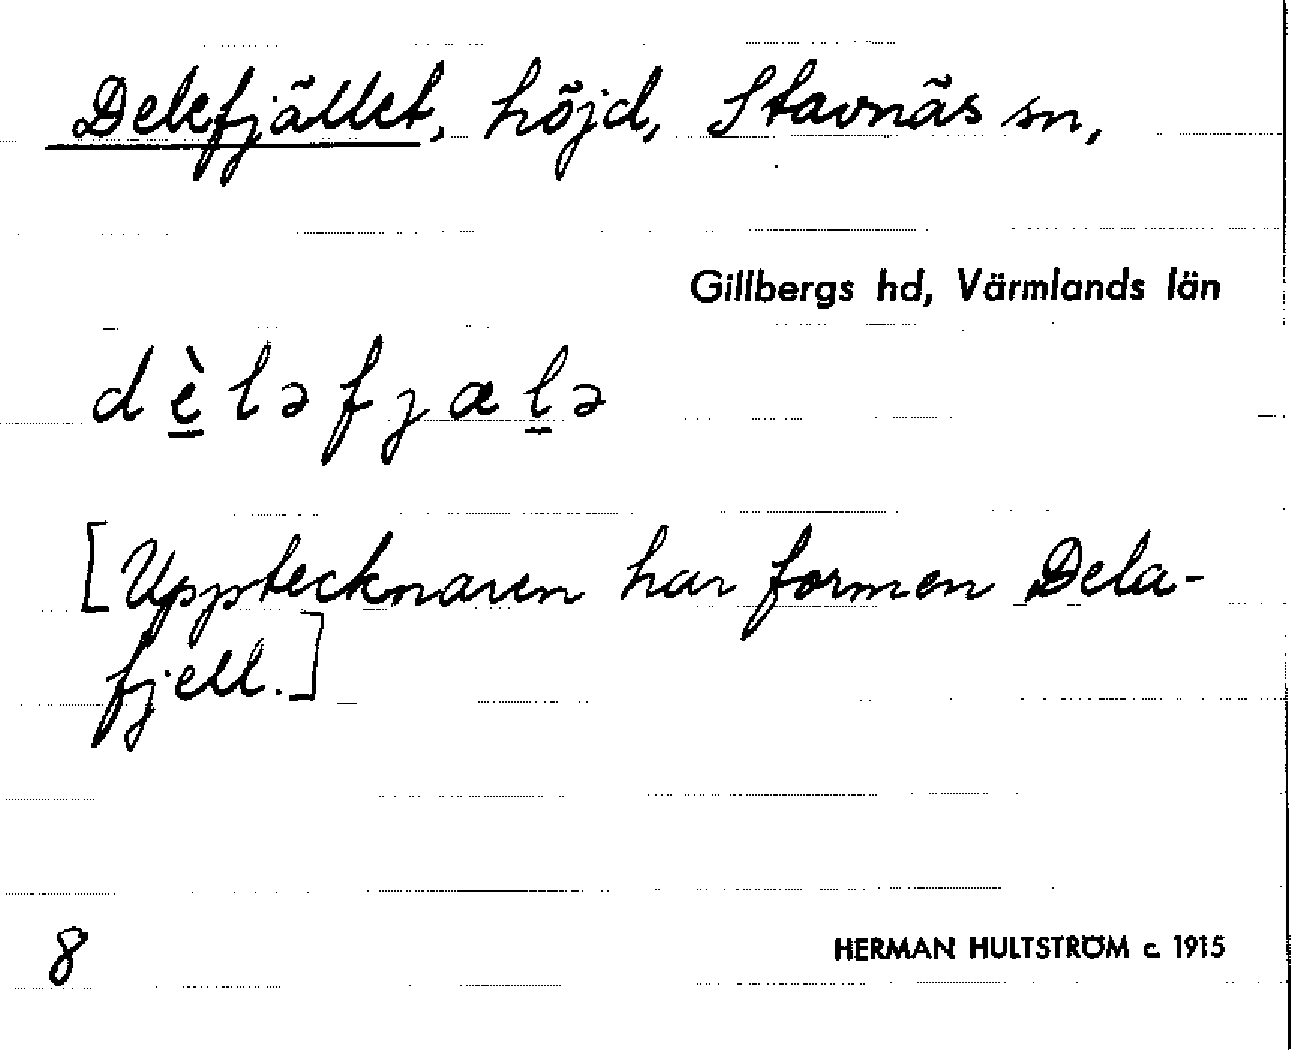 Delefjället, höjd, Stavnäs sn,
Gillbergs hd, Värmlands län
dè̱ləfjæl̲ə
[Upptecknaren har formen Dela-
fjell.]
8
HERMAN HULTSTRÖM c. 1915